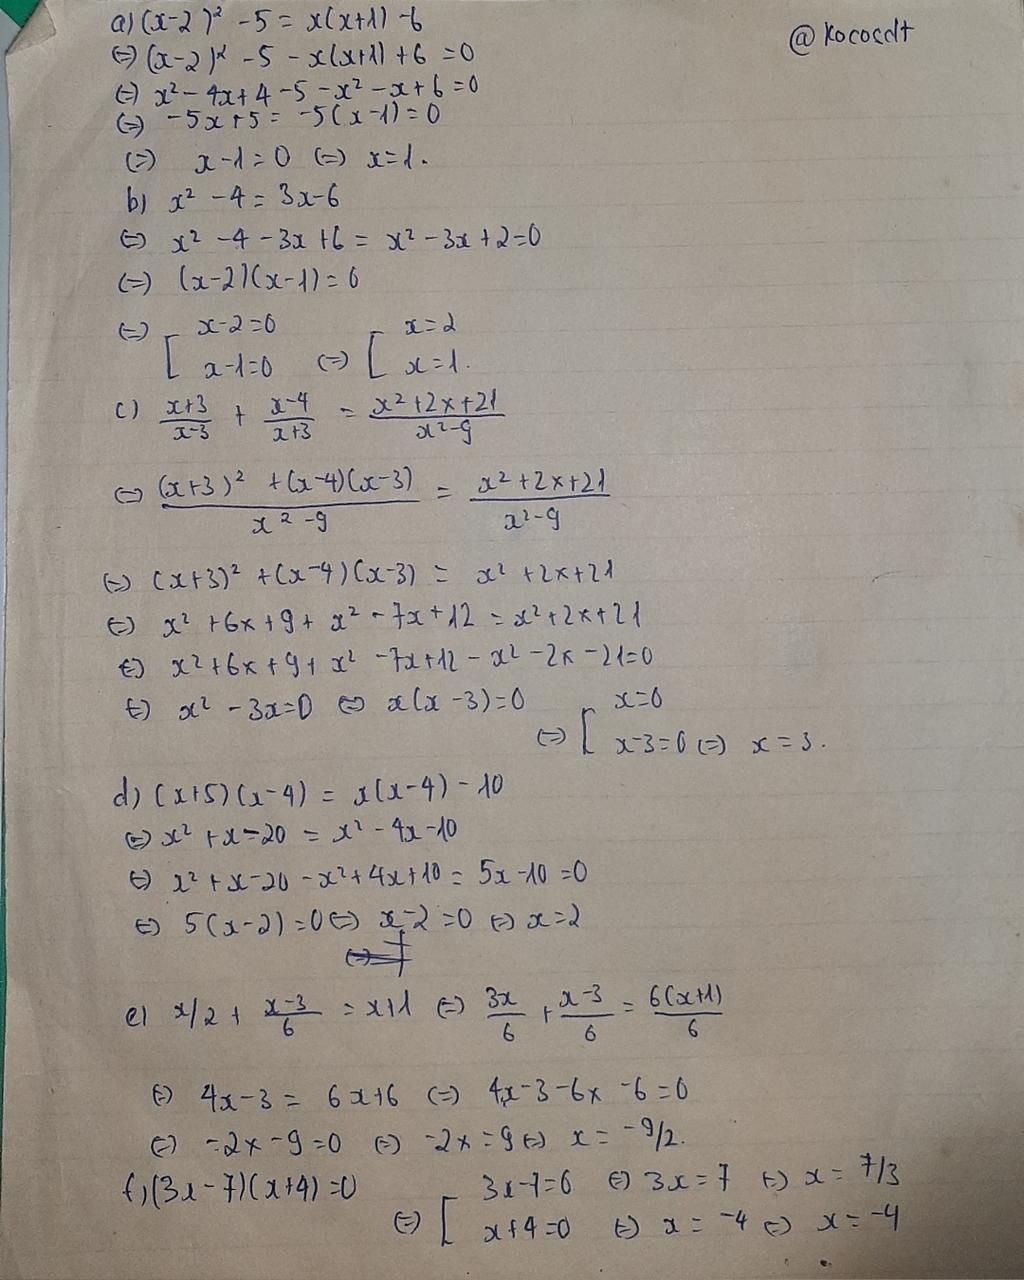 a) (x-2)² -5 = x(x+1) -6
@ Kococdt
(=) (x-2)² -5 - x(x+1) +6 =0
(=) x² - 4x+4 -5 -x² -x+6 =0
(=) -5x+5 = -5(x-1)=0
(=) x-1=0 (=) x=1.
b) x² -4 = 3x-6
(=) x² -4 -3x +6 = x² -3x +2=0
(=) (x-2)(x-1)=0
(=) [ x-2=0 (=) [ x=2
x-1=0 x=1.
c) \frac{x+3}{x-3} + \frac{x-4}{x+3} = \frac{x²+2x+21}{x²-9}
(=) \frac{(x+3)² +(x-4)(x-3)}{x²-9} = \frac{x²+2x+21}{x²-9}
(=) (x+3)² +(x-4)(x-3) = x² +2x+21
(=) x² +6x +9+ x² -7x+12 = x²+2x+21
(=) x²+6x+9+ x² -7x+12 - x² -2x -21=0
(=) x² -3x=0 (=) x(x-3)=0 (=) [ x=0
x-3=0 (=) x=3.
d) (x+5)(x-4) = x(x-4) -10
(=) x² +x-20 = x² -4x-10
(=) x² +x-20 -x²+4x+10 = 5x-10 =0
(=) 5(x-2)=0 (=) x-2=0 (=) x=2
e) x/2 + \frac{x-3}{6} = x+1 (=) \frac{3x}{6} + \frac{x-3}{6} = \frac{6(x+1)}{6}
(=) 4x-3 = 6x+6 (=) 4x-3-6x -6=0
(=) -2x-9=0 (=) -2x=9 (=) x= -9/2.
f) (3x-7)(x+4)=0 (=) [ 3x-7=0 (=) 3x=7 (=) x= 7/3
x+4=0 (=) x= -4 (=) x= -4